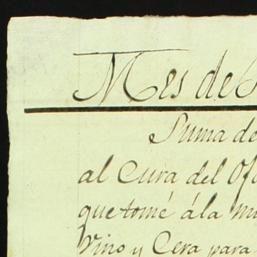 Mes de
Suma de
al Cura del
que tomé ála
Vino y Cera para